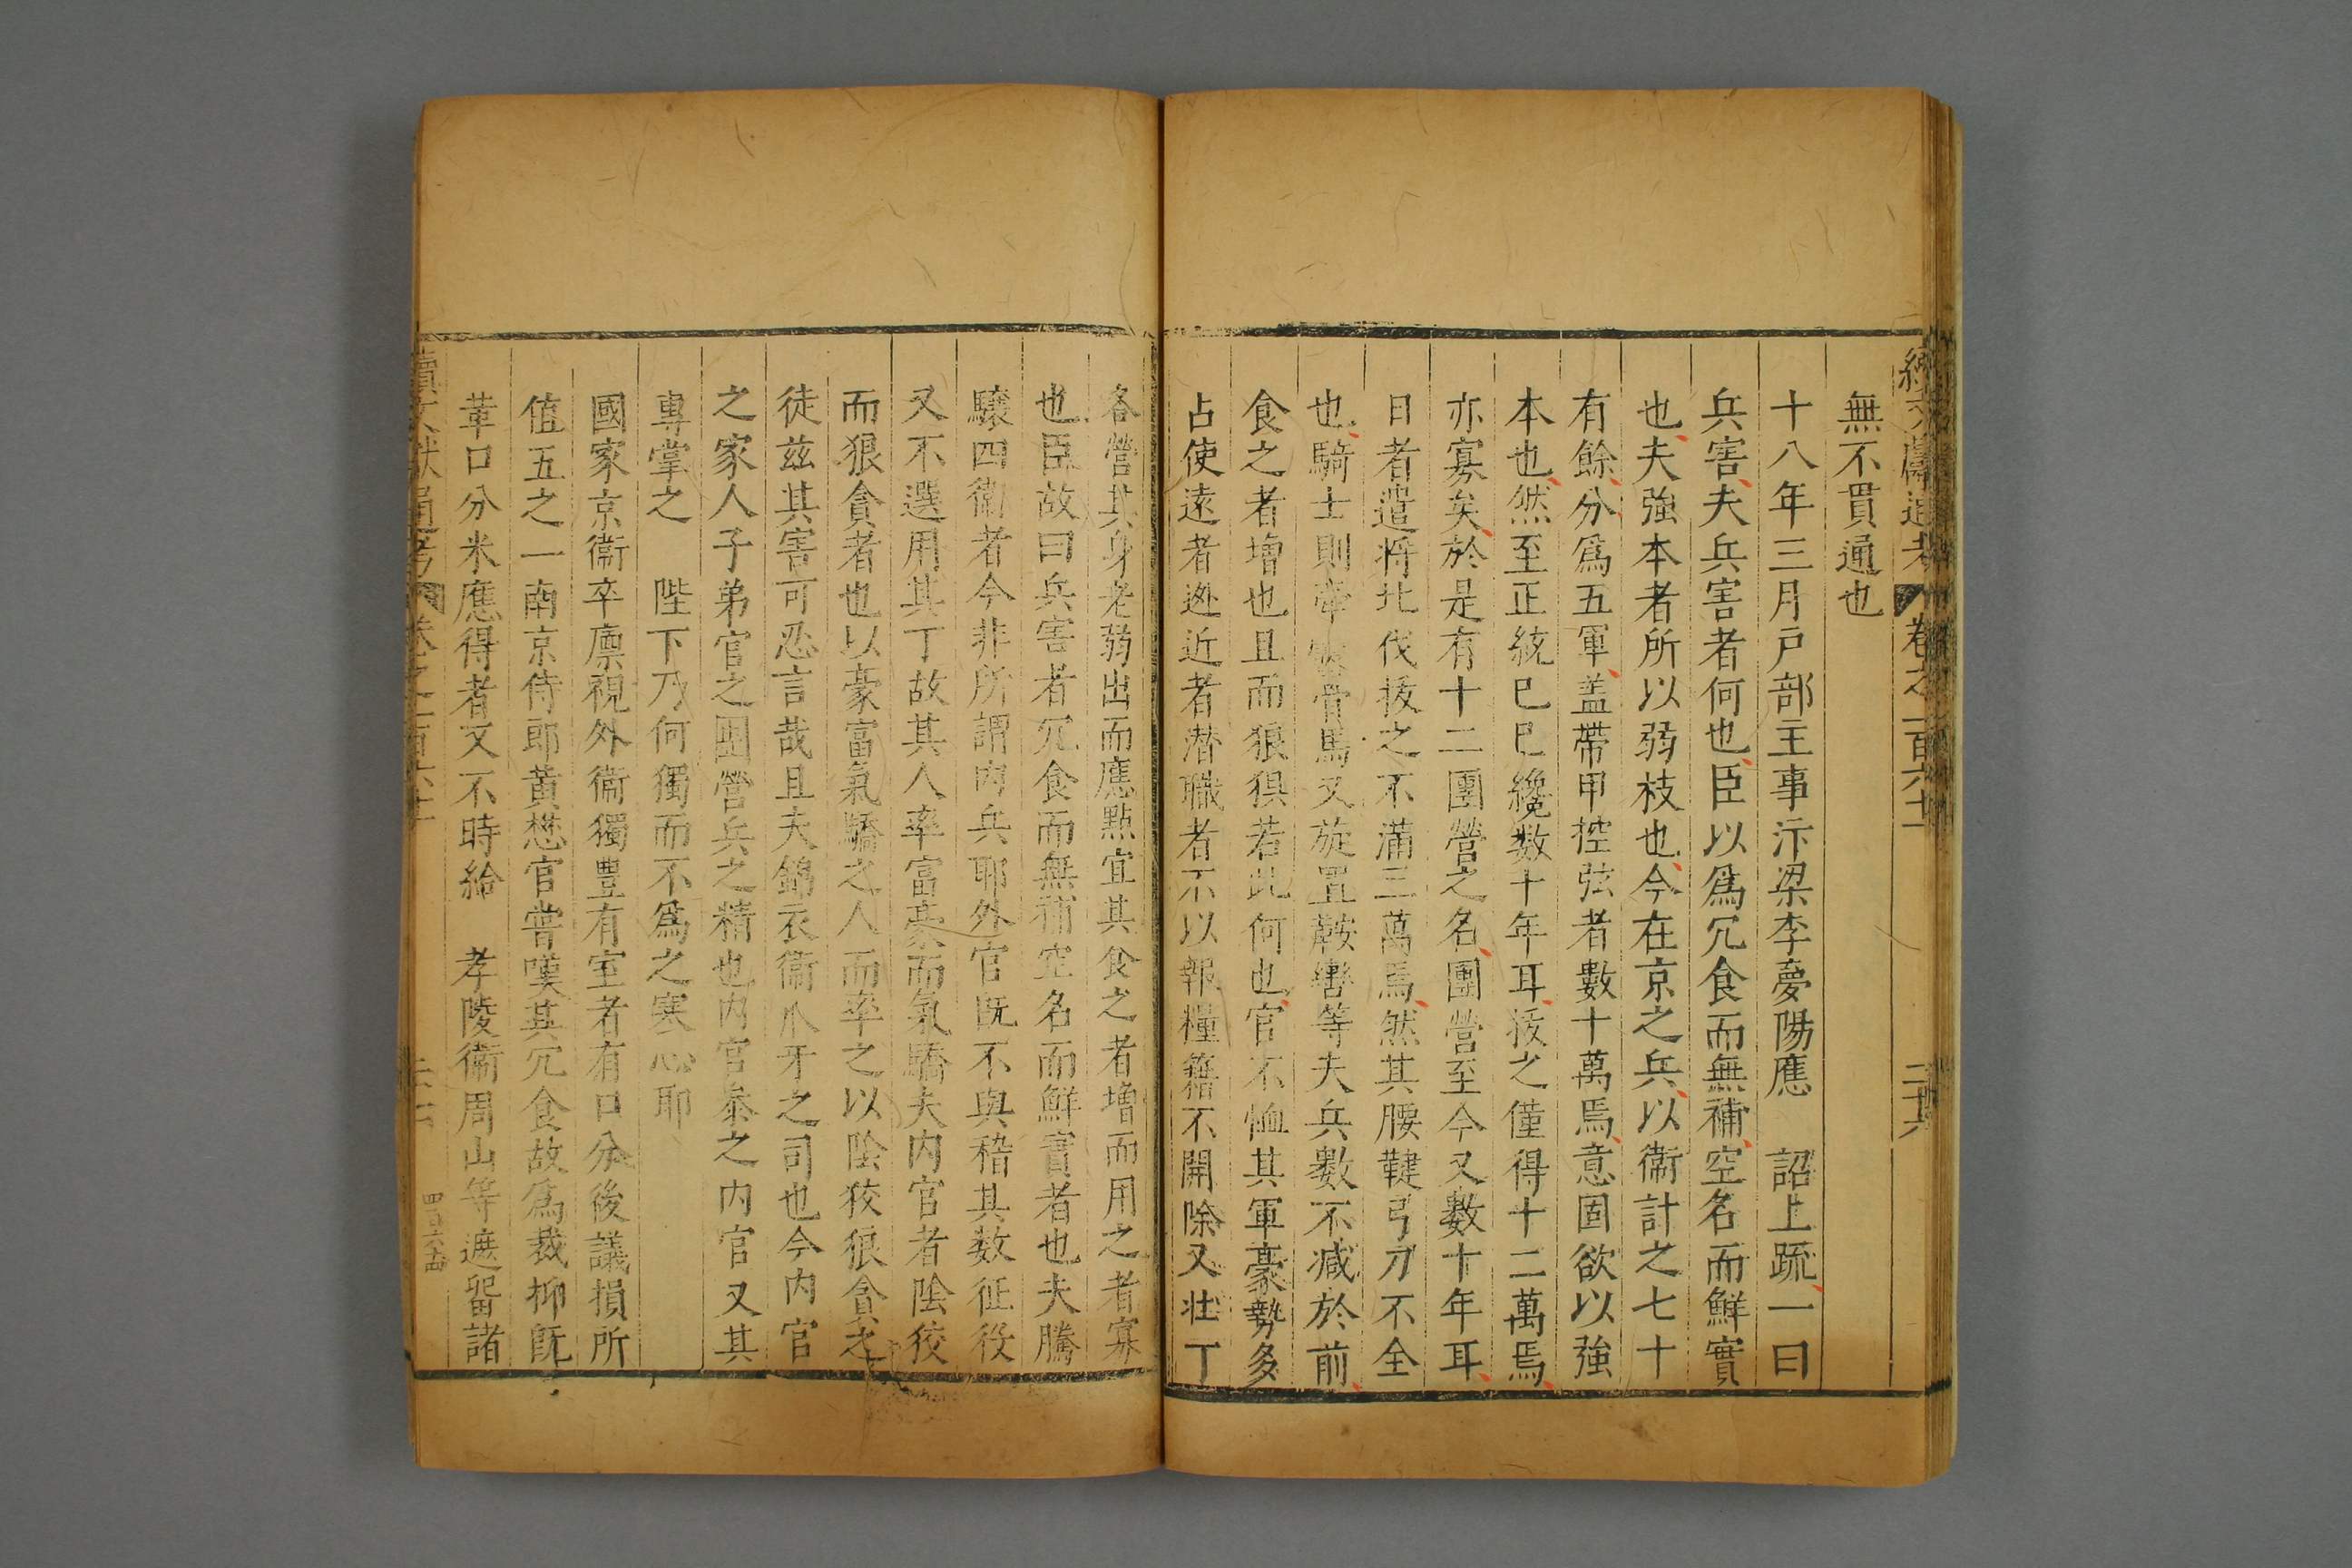 續文獻通考 卷之一百六十二 二十六
無不貫通也
十八年三月户部主事汴梁李夢陽應 詔上疏一曰
兵害夫兵害者何也臣以爲冗食而無補空名而鮮實
也夫強本者所以弱枝也今在京之兵以衛計之七十
有餘分爲五軍盖帶甲控弦者數十萬焉意固欲以強
本也然至正統己巳纔数十年耳拔之僅得十二萬焉
亦寡矣於是有十二團營之名團營至今又數十年耳
日者遣将北伐拔之不滿三萬焉然其腰鞬弓刀不全
也騎士則牽羸骨馬又旋置鞍轡等夫兵數不减於前
食之者增也且而狼狽若此何也官不恤其軍豪勢多
占使遠者逃近者潜職者不以報糧籍不開除又壮丁
各營其身老弱出而應點宜其食之者增而用之者寡
也臣故曰兵害者冗食而無補空名而鮮實者也夫騰
驤四衛者今非所謂内兵耶外官既不與稽其数征役
又不選用其丁故其人率富豪而氣驕夫内官者陰狡
而狠貪者也以豪富氣驕之人而率之以陰狡狠貪之
徒兹其害可忍言哉且夫錦衣衛爪牙之司也今内官
之家人子弟官之團營兵之精也内官叅之内官又其
專掌之 陛下乃何獨而不爲之寒心耶
國家京衛卒廪視外衛獨豊有室者有口分後議損所
值五之一南京侍郎黄懋官嘗嘆其冗食故爲裁抑既
革口分米應得者又不時給 孝陵衛周山等遮留諸
續文獻通考 卷之一百六十二
四百六十四